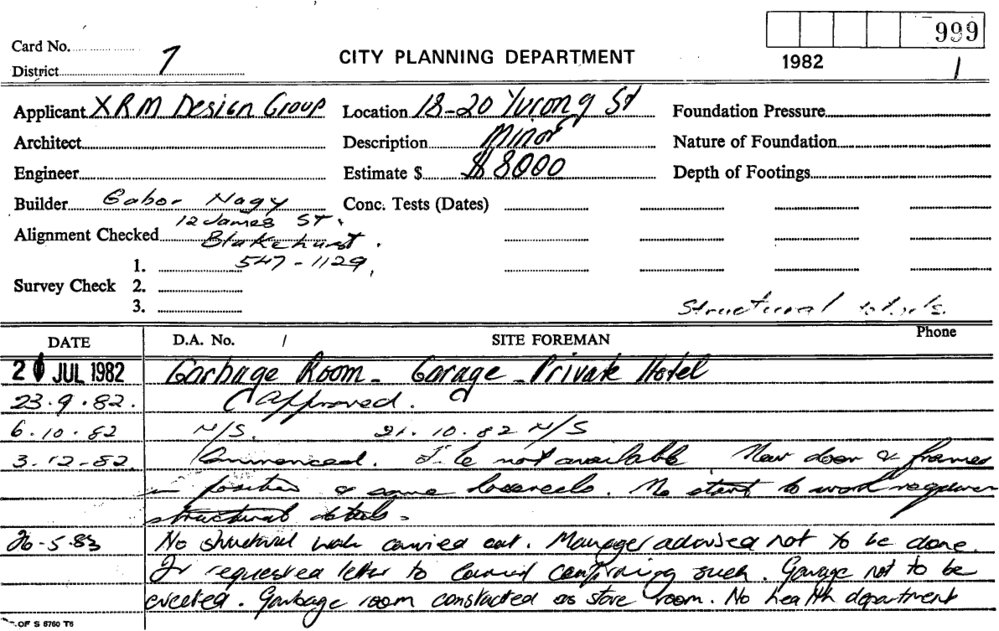 999
Card No.
District 7
CITY PLANNING DEPARTMENT
1982 1
Applicant XRM Design Group Location 18-20 Yurong St Foundation Pressure
Architect Description Minor Nature of Foundation
Engineer Estimate $ $8000 Depth of Footings
Builder Gabor Nagy Conc. Tests (Dates)
12 James ST.
Alignment Checked Blakehurst.
1. 547-1129,
Survey Check 2.
3. Structural
DATE D.A. No. / SITE FOREMAN Phone
20 JUL 1982 Garbage Room - Garage - Private Hotel
23.9.82. Approved.
6.10.82 N/S. 21.10.82 N/S
3.12.82. Commenced. File not available New door & frames
in position & some brickwork. No start to work
structural details.
26-5.83 No structural work carried out. Manager advised not to be done.
requested letter to Council confirming such. Garage not to be
erected. Garbage room constructed as store room. No health department
OF S 8760 T6